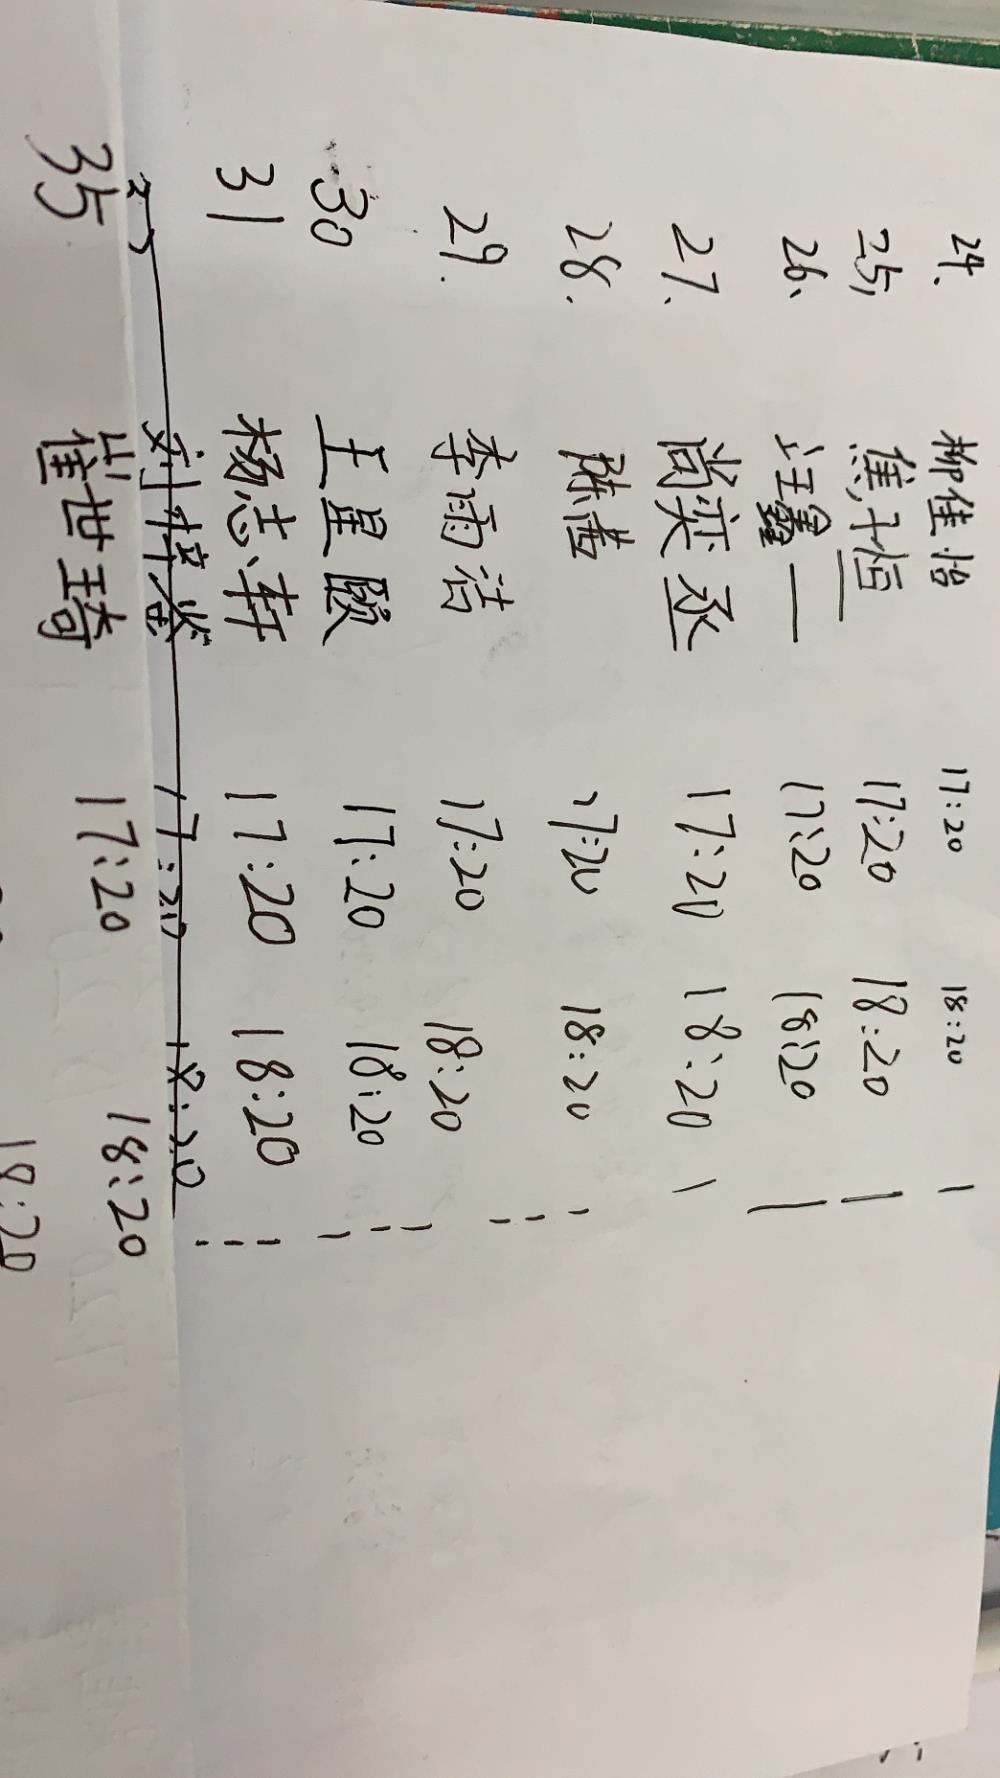 24. 柳佳怡 17:20 18:20 1
25, 焦子恒 17:20 18:20 1
26、 汪鑫一 17:20 18:20 1
27、 尚奕丞 17:20 18:20 1
28. 陈茜 17:20 18:20
29. 李雨洁 17:20 18:20
30 王星颐 17:20 18:20
31 杨志轩 17:20 18:20
17:20 18:20
35 崔世琦 17:20 18:20
18:20